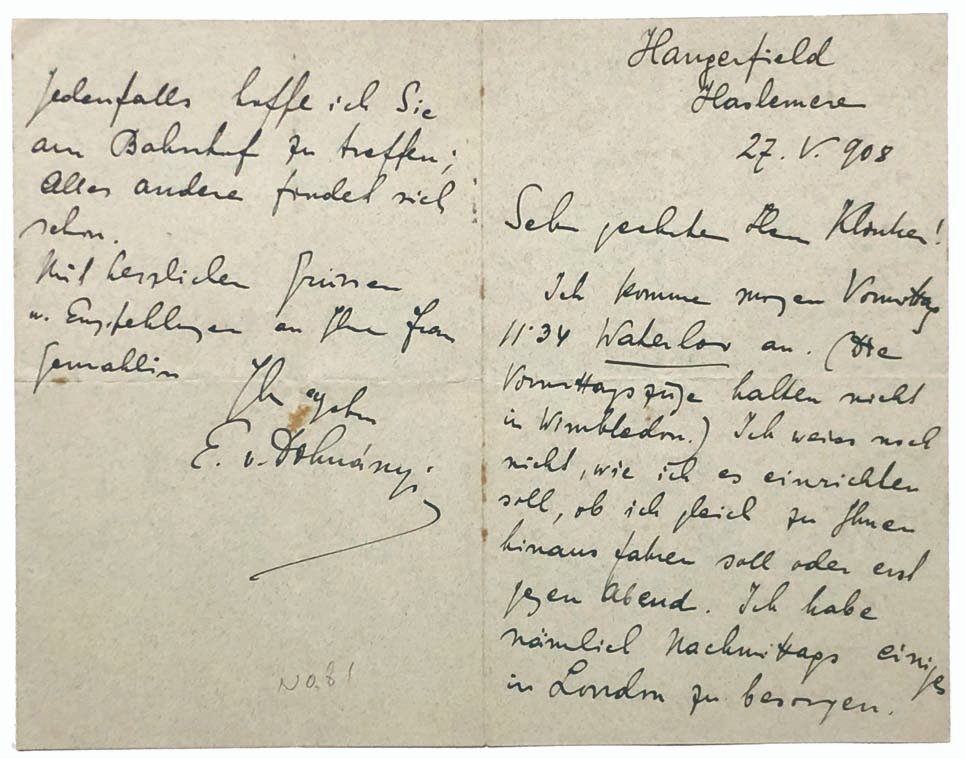 Hangerfield
Haslemere
27. V. 908
Sehr geehrter Herr Klinker!
Ich komme morgen Vormittag
11·34 Waterloo an. (Die
Vormittagszüge halten nicht
in Wimbledon.) Ich weiss noch
nicht, wie ich es einrichten
soll, ob ich gleich zu Ihnen
hinaus fahren soll oder erst
gegen Abend. Ich habe
nämlich Nachmittags einiges
in London zu besorgen.
Jedenfalls hoffe ich Sie
am Bahnhof zu treffen;
alles andere findet sich
schon.
Mit herzlichen Grüssen
u. Empfehlungen an Ihre Frau
Gemahlin
Ihr ergeb.
E. v. Dohnányi
No. 81